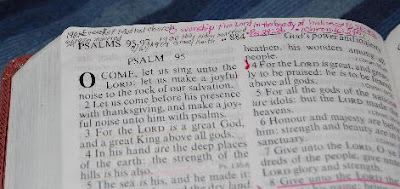 O worship the Lord in the beauty of holiness
PSALMS 95, 96
PSALM 95
O COME, let us sing unto the
LORD: let us make a joyful
noise to the rock of our salvation.
2 Let us come before his presence
with thanksgiving, and make a joy-
ful noise unto him with psalms.
3 For the LORD is a great God,
and a great King above all gods.
4 In his hand are the deep places
of the earth: the strength of the
hills is his also.
5 The sea is his, and he made it:
God's power and
heathen, his wonders among all
people.
4 For the LORD is great, and great-
ly to be praised: he is to be
above all gods.
5 For all the gods of the
are idols: but the LORD made
heavens.
6 Honour and majesty are
him: strength and beauty are in
sanctuary.
7 Give unto the LORD, O
dreds of the people, give unto
LORD glory and strength.
8 Give unto the LORD the